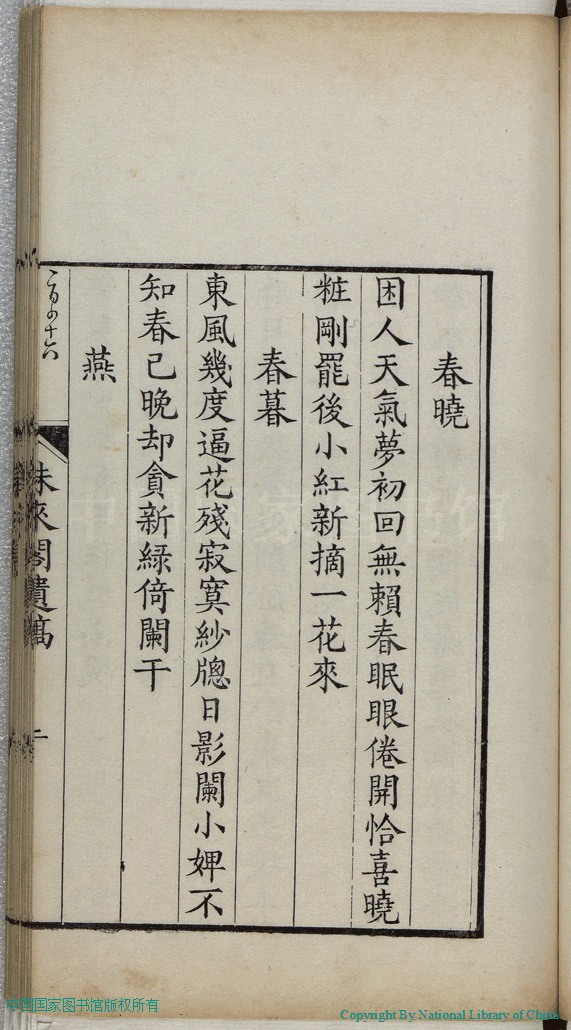 春曉
困人天氣夢初回無賴春眠眼倦開恰喜曉
粧剛罷後小紅新摘一花來
春暮
東風幾度逼花殘寂寞紗牕日影闌小婢不
知春已晚却貪新綠倚闌干
燕
二百四十六
味來閣遺稿
二
中国国家图书馆
中国国家图书馆版权所有
Copyright By National Library of China